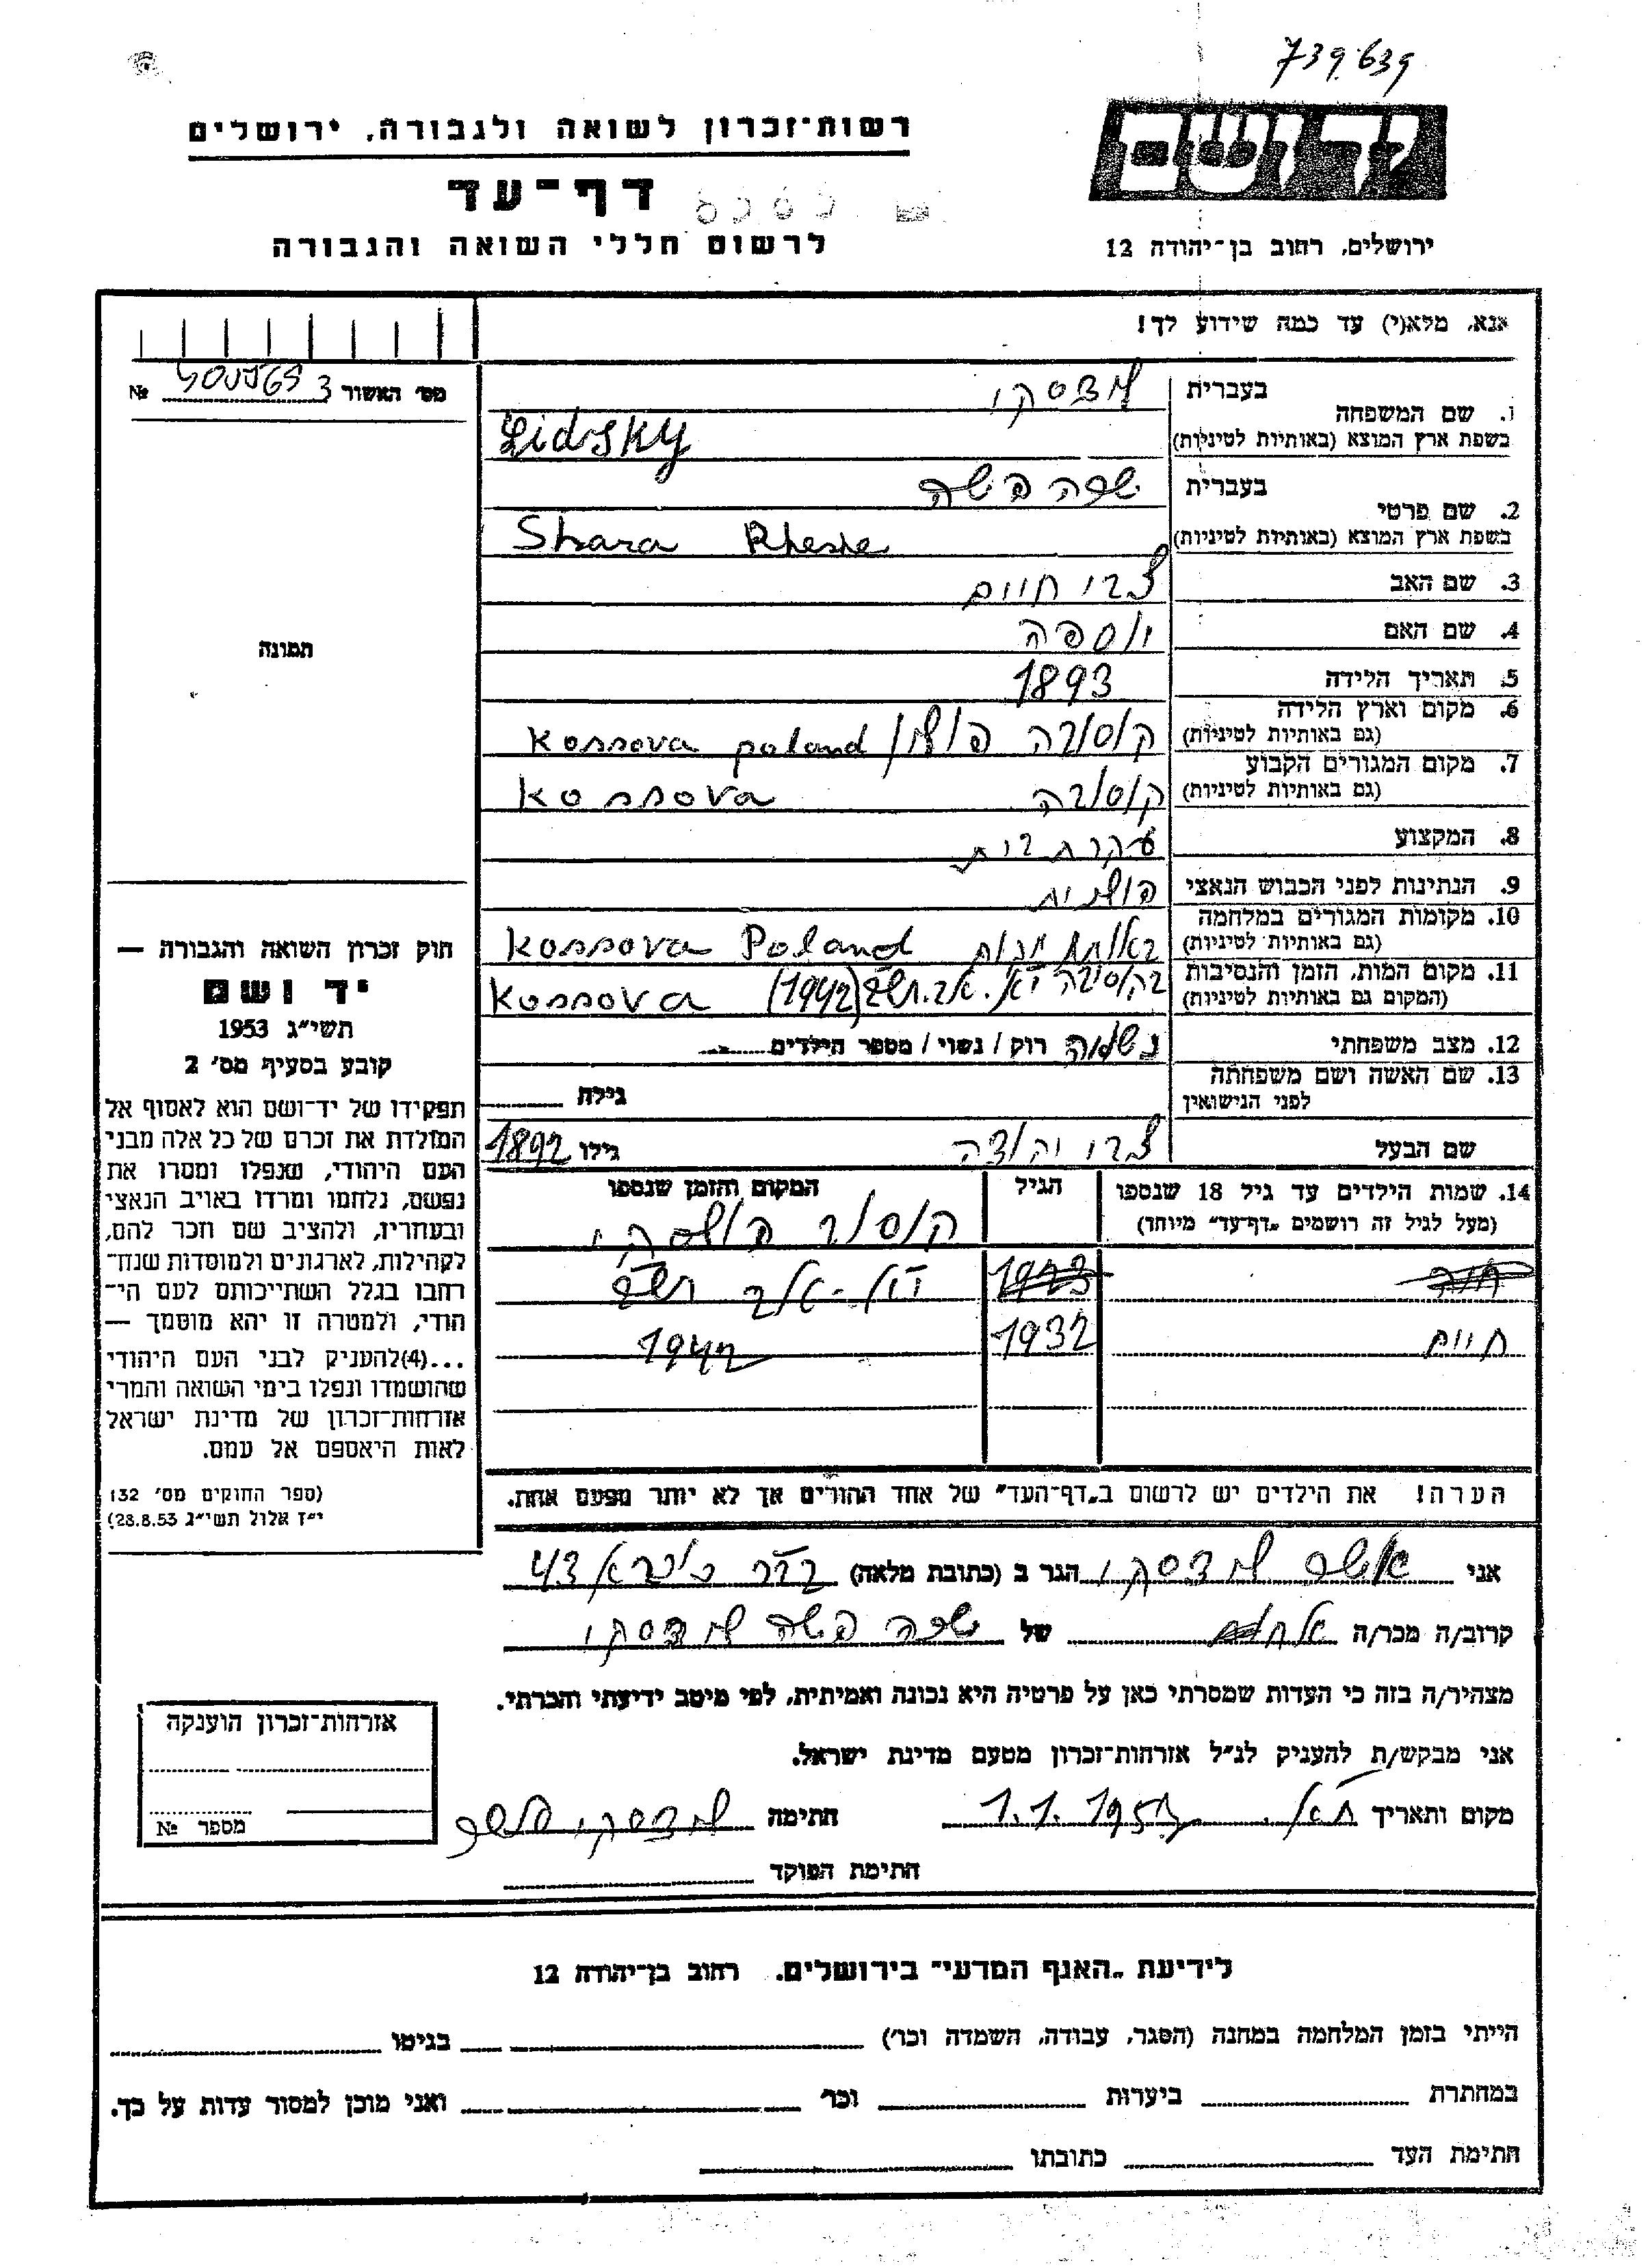 739.639
יד ושם
ירושלים, רחוב בן-יהודה 12
רשות-זכרון לשואה ולגבורה, ירושלים
דף-עד
לרשום חללי השואה והגבורה
אנא, מלא(י) עד כמה שידוע לך!
מס׳ האשור №
1. שם המשפחה בעברית לידסקי
בשפת ארץ המוצא (באותיות לטיניות) Lidsky
2. שם פרטי בעברית שרה פשה
בשפת ארץ המוצא (באותיות לטיניות) Shara Pheshe
3. שם האב צבי חיים
4. שם האם
5. תאריך הלידה 1893
6. מקום וארץ הלידה קוסובה פולין Kossova poland
(גם באותיות לטיניות)
7. מקום המגורים הקבוע קוסובה Kossova
(גם באותיות לטיניות)
8. המקצוע עקרת בית
9. הנתינות לפני הכבוש הנאצי פולנית
10. מקומות המגורים במלחמה באותו מקום Kossova Poland
(גם באותיות לטיניות)
11. מקום המות, הזמן והנסיבות בקוסובה י״א. אב. תש״ב (1942) Kossova
(המקום גם באותיות לטיניות)
12. מצב משפחתי נשואה רווק / נשוי / מספר הילדים
13. שם האשה ושם משפחתה
לפני הנישואין גילה
שם הבעל צבי יהודה גילו 1892
14. שמות הילדים עד גיל 18 שנספו הגיל המקום והזמן שנספו
(מעל לגיל זה רושמים „דף-עד״ מיוחד) קוסוב פולסקי
1923 י״א - אב תש״ב
חיים 1932 1942
הערה! את הילדים יש לרשום ב„דף-העד״ של אחד ההורים אך לא יותר מפעם אחת.
אני אשר לידסקי הגר ב (כתובת מלאה)
קרוב/ה מכר/ה של שרה פשה לידסקי
מצהיר/ה בזה כי העדות שמסרתי כאן על פרטיה היא נכונה ואמיתית, לפי מיטב ידיעתי והכרתי.
אני מבקש/ת להעניק לנ״ל אזרחות-זכרון מטעם מדינת ישראל.
מקום ותאריך ת״א. 1.1.195 חתימה לידסקי אשר
חתימת הפוקד
תמונה
חוק זכרון השואה והגבורה —
יד ושם
תשי״ג 1953
קובע בסעיף מס׳ 2
תפקידו של יד-ושם הוא לאסוף אל
המולדת את זכרם של כל אלה מבני
העם היהודי, שנפלו ומסרו את
נפשם, נלחמו ומרדו באויב הנאצי
ובעוזריו, ולהציב שם וזכר להם,
לקהילות, לארגונים ולמוסדות שנח־
רבו בגלל השתייכותם לעם הי־
הודי, ולמטרה זו יהא מוסמך —
...(4)להעניק לבני העם היהודי
שהושמדו ונפלו בימי השואה והמרי
אזרחות-זכרון של מדינת ישראל
לאות היאספם אל עמם.
(ספר החוקים מס׳ 132
י״ז אלול תשי״ג 28.8.53)
אזרחות-זכרון הוענקה
מספר №
לידיעת „האגף המדעי״ בירושלים. רחוב בן-יהודה 12
הייתי בזמן המלחמה במחנה (הסגר, עבודה, השמדה וכו׳) בגיטו
במחתרת ביערות וכו׳ ואני מוכן למסור עדות על כך.
חתימת העד כתובתו